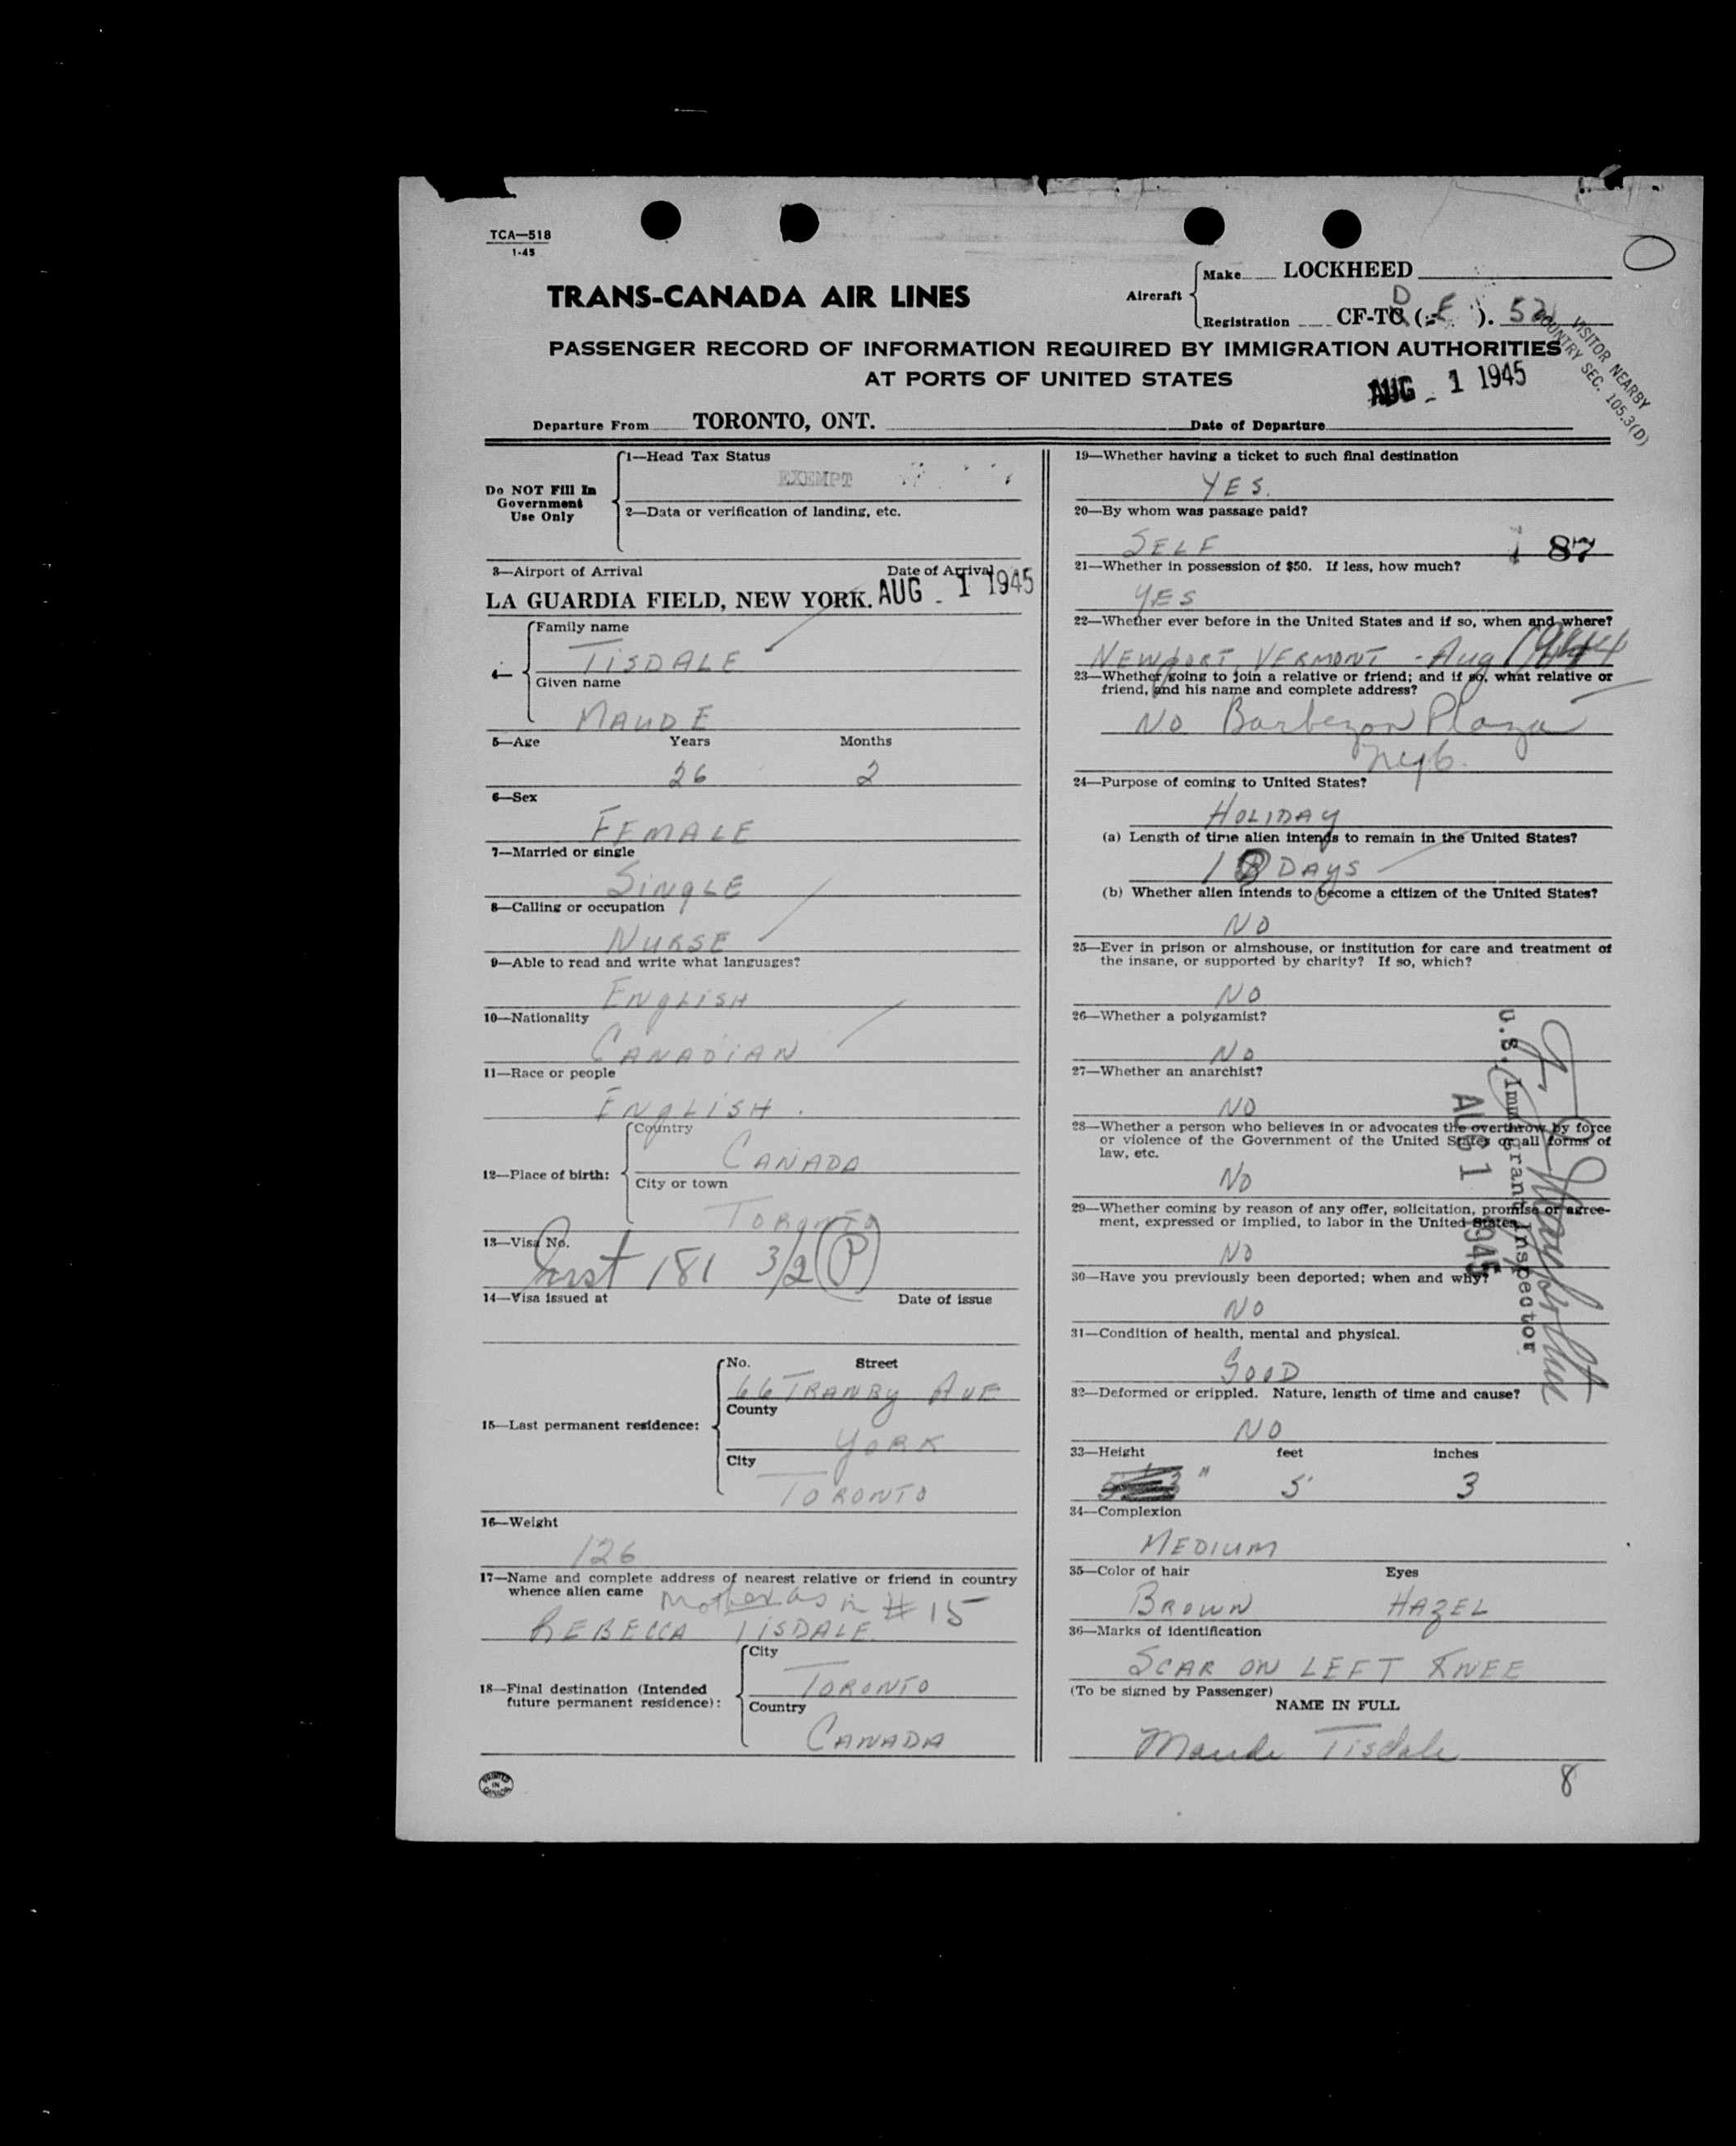 TCA—518
1-45
TRANS-CANADA AIR LINES
Aircraft
Make LOCKHEED
Registration CF-TC D ( E ). 52
PASSENGER RECORD OF INFORMATION REQUIRED BY IMMIGRATION AUTHORITIES
AT PORTS OF UNITED STATES
VISITOR NEARBY
COUNTRY SEC. 105.3(D)
AUG - 1 1945
Departure From TORONTO, ONT. Date of Departure
Do NOT Fill In
Government
Use Only
1—Head Tax Status
EXEMPT
2—Data or verification of landing, etc.
3—Airport of Arrival Date of Arrival
LA GUARDIA FIELD, NEW YORK. AUG - 1 1945
4—
Family name
TISDALE
Given name
MAUDE
5—Age Years Months
26 2
6—Sex
FEMALE
7—Married or single
SINGLE
8—Calling or occupation
NURSE
9—Able to read and write what languages?
ENGLISH
10—Nationality
CANADIAN
11—Race or people
ENGLISH.
12—Place of birth:
Country
CANADA
City or town
TORONTO
13—Visa No.
181 3/2 (P)
14—Visa issued at Date of issue
15—Last permanent residence:
No. Street
66 TRANBY AVE
County
YORK
City
TORONTO
16—Weight
126
17—Name and complete address of nearest relative or friend in country
whence alien came Mother as in # 15
REBECCA TISDALE
18—Final destination (Intended
future permanent residence):
City
TORONTO
Country
CANADA
PRINTED
IN
CANADA
19—Whether having a ticket to such final destination
YES.
20—By whom was passage paid?
SELF
87
21—Whether in possession of $50. If less, how much?
YES
22—Whether ever before in the United States and if so, when and where?
NEWPORT, VERMONT - Aug 1944
23—Whether going to join a relative or friend; and if so, what relative or
friend, and his name and complete address?
NO Barbezon Plaza
NYC.
24—Purpose of coming to United States?
HOLIDAY
(a) Length of time alien intends to remain in the United States?
DAYS
(b) Whether alien intends to become a citizen of the United States?
NO
25—Ever in prison or almshouse, or institution for care and treatment of
the insane, or supported by charity? If so, which?
NO
26—Whether a polygamist?
NO
27—Whether an anarchist?
NO
28—Whether a person who believes in or advocates the overthrow by force
or violence of the Government of the United States or all forms of
law, etc.
NO
29—Whether coming by reason of any offer, solicitation, promise or agree-
ment, expressed or implied, to labor in the United States.
NO
30—Have you previously been deported; when and why?
NO
31—Condition of health, mental and physical.
GOOD
32—Deformed or crippled. Nature, length of time and cause?
NO
33—Height feet inches
5' 3
34—Complexion
MEDIUM
35—Color of hair Eyes
BROWN HAZEL
36—Marks of identification
SCAR ON LEFT KNEE
(To be signed by Passenger)
NAME IN FULL
Maude Tisdale
8
U.S. Immigrant Inspector
AUG 1 1945